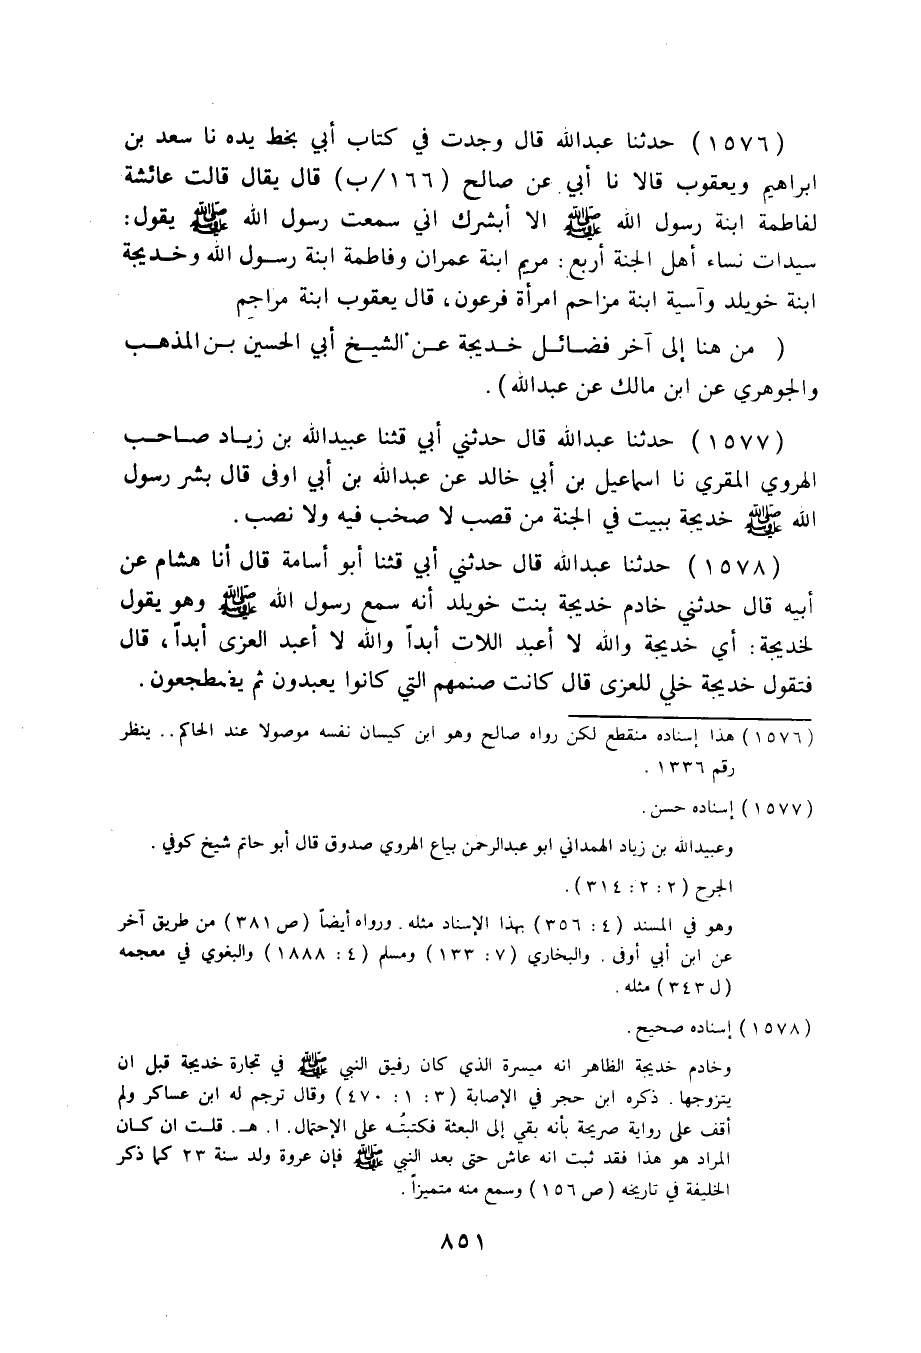 (١٥٧٦) حدثنا عبدالله قال وجدت في كتاب أبي بخط يده نا سعد بن
ابراهيم ويعقوب قالا نا أبي عن صالح (١٦٦/ب) قال يقال قالت عائشة
لفاطمة ابنة رسول الله ﷺ الا أبشرك اني سمعت رسول الله ﷺ يقول:
سيدات نساء أهل الجنة أربع: مريم ابنة عمران وفاطمة ابنة رسول الله وخديجة
ابنة خويلد وآسية ابنة مزاحم امرأة فرعون، قال يعقوب ابنة مزاجم
( من هنا إلى آخر فضائل خديجة عن الشيخ أبي الحسين بن المذهب
والجوهري عن ابن مالك عن عبدالله).
(١٥٧٧) حدثنا عبدالله قال حدثني أبي قثنا عبيدالله بن زياد صاحب
الهروي المقري نا اسماعيل بن أبي خالد عن عبدالله بن أبي اوفى قال بشر رسول
الله ﷺ خديجة ببيت في الجنة من قصب لا صخب فيه ولا نصب.
(١٥٧٨) حدثنا عبدالله قال حدثني أبي قثنا أبو أسامة قال أنا هشام عن
أبيه قال حدثني خادم خديجة بنت خويلد أنه سمع رسول الله ﷺ وهو يقول
لخديجة: أي خديجة والله لا أعبد اللات أبداً والله لا أعبد العزى أبداً، قال
فتقول خديجة خلي للعزى قال كانت صنمهم التي كانوا يعبدون ثم يضطجعون.
(١٥٧٦) هذا إسناده منقطع لكن رواه صالح وهو ابن كيسان نفسه موصولا عند الحاكم.. ينظر
رقم ١٣٣٦.
(١٥٧٧) إسناده حسن.
وعبيدالله بن زياد الهمداني ابو عبدالرحمن بياع الهروي صدوق قال أبو حاتم شيخ كوفي.
الجرح (٢: ٢: ٣١٤).
وهو في المسند (٤: ٣٥٦) بهذا الإسناد مثله. ورواه أيضاً (ص ٣٨١) من طريق آخر
عن ابن أبي أوفى. والبخاري (٧: ١٣٣) ومسلم (٤: ١٨٨٨) والبغوي في معجمه
(ل ٣٤٣) مثله.
(١٥٧٨) إسناده صحيح.
وخادم خديجة الظاهر انه ميسرة الذي كان رفيق النبي ﷺ في تجارة خديجة قبل ان
يتزوجها. ذكره ابن حجر في الإصابة (٣: ١: ٤٧٠) وقال ترجم له ابن عساكر ولم
أقف على رواية صريحة بأنه بقي إلى البعثة فكتبتُه على الإحتمال. ا. هـ. قلت ان كان
المراد هو هذا فقد ثبت انه عاش حتى بعد النبي ﷺ فإن عروة ولد سنة ٢٣ كما ذكر
الخليفة في تاريخه (ص ١٥٦) وسمع منه متميزاً.
٨٥١